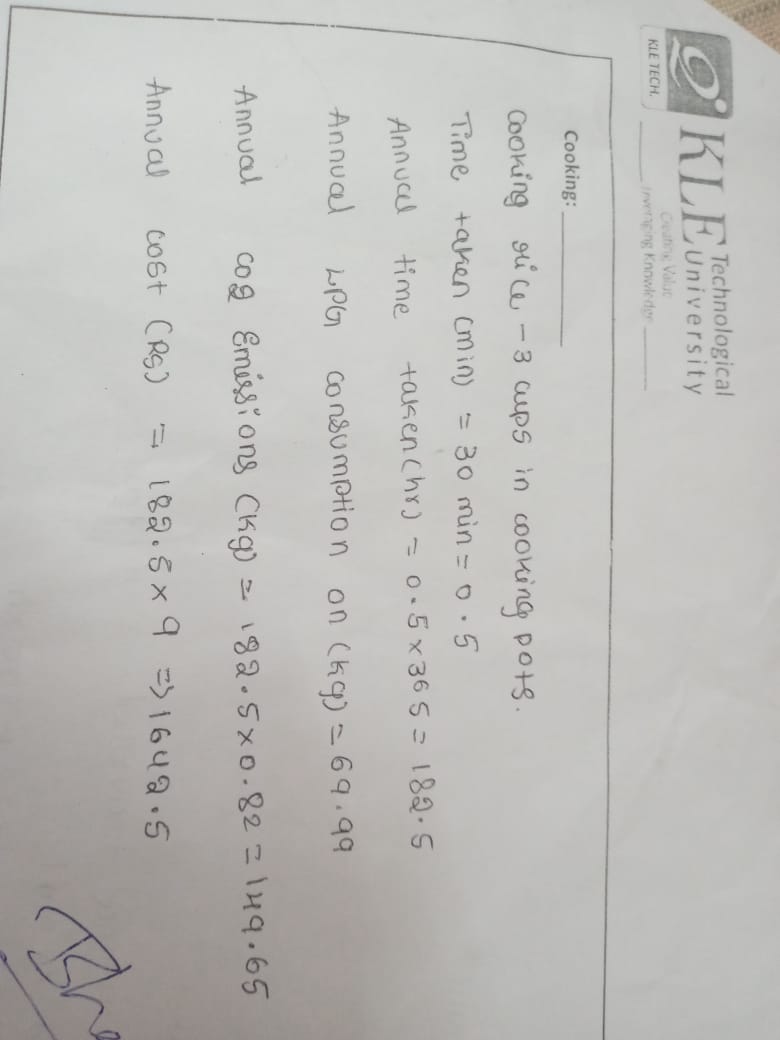 KLE Technological University
Creating Value
Leveraging Knowledge
KLE TECH.
Cooking:
Cooking rice - 3 cups in cooking pots.
Time taken (min) = 30 min = 0.5
Annual time taken (hr) = 0.5 x 365 = 182.5
Annual LPG consumption on (kg) = 69.99
Annual co2 Emissions (kg) = 182.5 x 0.82 = 149.65
Annual cost (Rs) = 182.5 x 9 => 1642.5